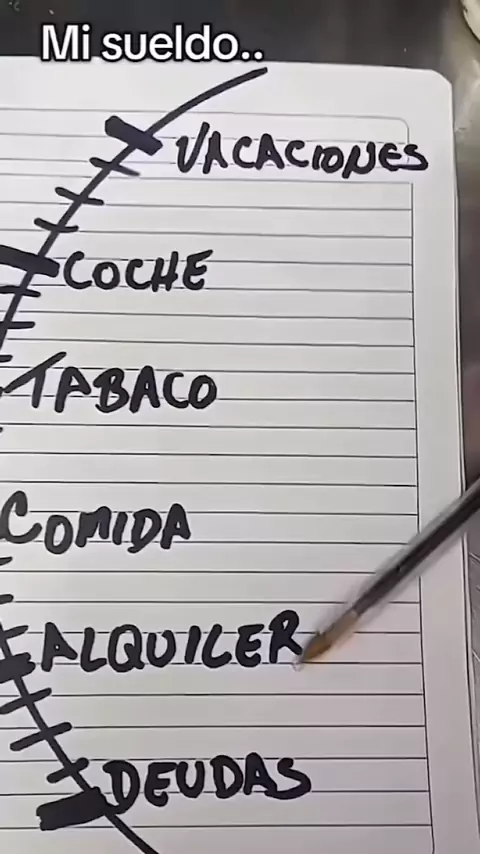 Mi sueldo..
VACACIONES
COCHE
TABACO
COMIDA
ALQUILER
DEUDAS